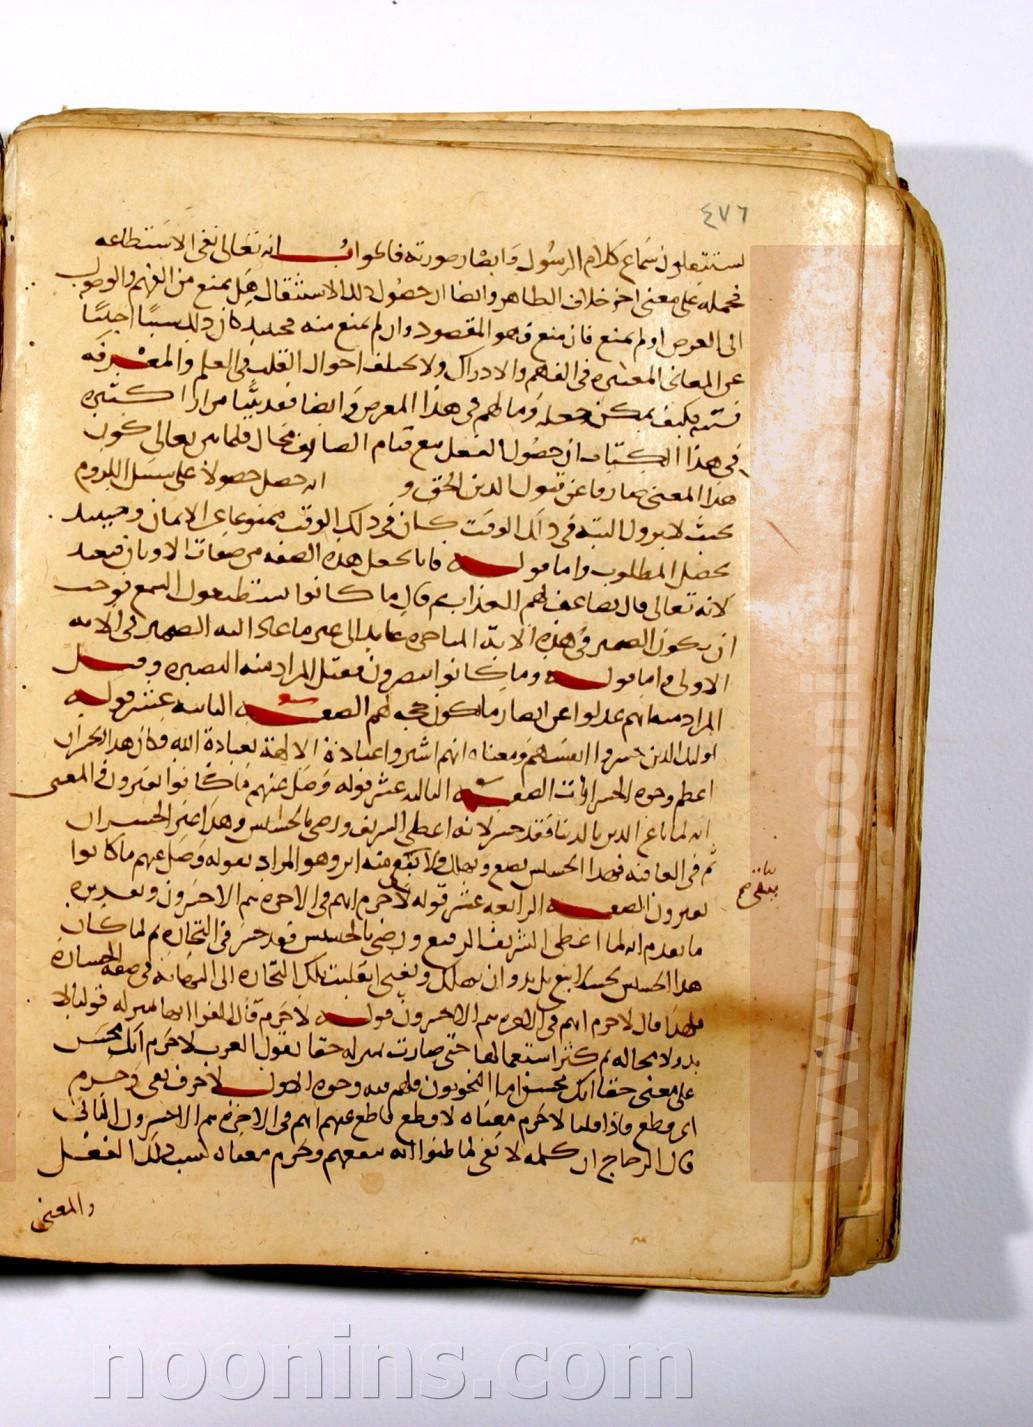 ٤٧٦
يستثقلون سماع كلام الرسول وابصار صورته فالجواب انه تعالى نفى الاستطاعه
فحمله على معنى اخر خلاف الظاهر وايضا ان حصول ذلك الاستثقال هل يمنع من الفهم والوصول
الى الغرض او لم يمنع فان منع فهو المقصود وان لم يمنع منه فحينئذ كان ذلك سببا اجنبيا
عن المعانى المعتبره فى الفهم والادراك ولا يختلف احوال القلب فى العلم والمعرفه
فبسببه فكيف يمكن جعله وما لهم فى هذا المعرض وايضا فقد بينا مرارا كثيره
فى هذا الكتاب ان حصول الفعل مع قيام الصارف محال فلما بين تعالى كون
هذا المعنى صارفا عن قبول الدين الحق و انه حصل حصولا على سبيل اللزوم
بحيث لا يزول البته فى ذلك الوقت كان فى ذلك الوقت ممنوعا عن الايمان وحينئذ
يحصل المطلوب واما قوله فانا نجعل هذه الصفه من صفات الاوثان فبعيد
لانه تعالى قال يضاعف لهم العذاب ثم قال ما كانوا يستطيعون السمع فوجب
ان يكون الضمير فى هذه الايه المتاخره عايدا الى عين ما عاد اليه الضمير فى الايه
الاولى واما قوله وما كانوا يبصرون فقيل المراد منه البصيره وقيل
المراد منه انهم عدلوا عن ابصار ما يكون حجه لهم الصفه الثانيه عشر قوله
اوليك الذين خسروا انفسهم ومعناه انهم اشتروا عبادة الالهة بعبادة الله فكان هذا الخسران
اعظم وجوه الخسرانات الصفه الثالثه عشر قوله وضل عنهم ما كانوا يفترون والمعنى
انه لما باع الدين بالدنيا فقد خسر لانه اعطى الشريف ورضى بالخسيس وهذا عين الخسران
ثم فى العاقبه فهذا الخسيس يضيع ويهلك ولا يبقى منه اثر وهو المراد بقوله وضل عنهم ما كانوا
يفترون الصفه الرابعه عشر قوله لا جرم انهم فى الاخره هم الاخسرون وتقديره
ما تقدم انه لما اعطى الشريف الرفيع ورضى بالخسيس فقد خسر فى التجاره ثم لما كان
هذا الخسيس بحيث لا يبقى بل بد وان يهلك ويفنى انقلبت تلك التجاره الى النهايه فى صفه الخساره
فلهذا قال لا جرم انهم فى الاخره هم الاخسرون قوله لا جرم قال الفرا انها بمنزله قولنا لا
بد ولا محاله ثم كثر استعمالها حتى صارت بمنزله حقا تقول العرب لا جرم انك محسن
على معنى حقا انك محسن اما النحويون فلهم فيه وجوه الاول لا حرف نفى وجرم
اى قطع فاذا قلنا لا جرم معناه لا قطع قاطع عنهم انهم فى الاخره هم الاخسرون الثانى
قال الزجاج ان كلمه لا نفى لما ظنوا انه ينفعهم وجرم معناه كسب ذلك الفعل
والمعنى
يبقى
www.noonins.com
noonins.com